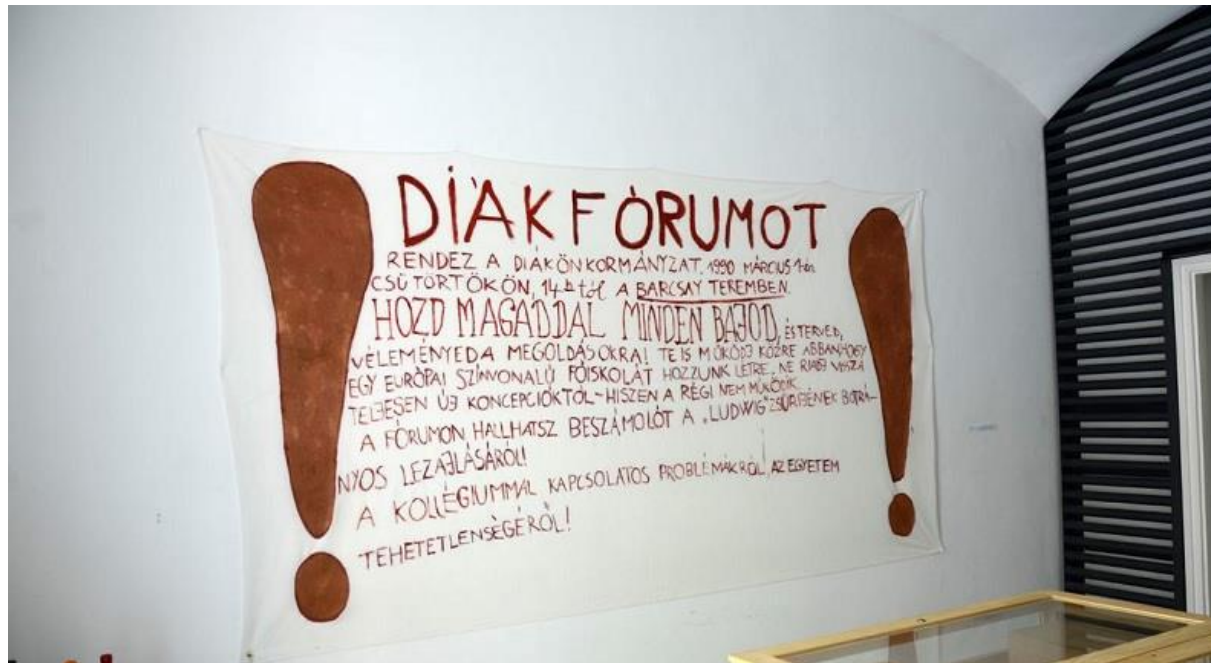 DIÁKFÓRUMOT
RENDEZ A DIÁKÖNKORMÁNYZAT, 1990 MÁRCIUS 1-én
CSÜTÖRTÖKÖN, 14 h tól A BARCSAY TEREMBEN.
HOZD MAGADDAL MINDEN BAJOD, ÉS TERVED,
VÉLEMÉNYED A MEGOLDÁSOKRA! TE IS MŰKÖDJ KÖZRE ABBAN, HOGY
EGY EURÓPAI SZÍNVONALÚ FŐISKOLÁT HOZZUNK LÉTRE, NE RIADJ VISSZA
TELJESEN ÚJ KONCEPCIÓKTÓL - HISZEN A RÉGI NEM MŰKÖDIK.
A FÓRUMON HALLHATSZ BESZÁMOLÓT A „LUDWIG” ZSŰRIJÉNEK BOTRÁ-
NYOS LEZAJLÁSÁRÓL!
A KOLLÉGIUMMAL KAPCSOLATOS PROBLÉMÁKRÓL, AZ EGYETEM
TEHETETLENSÉGÉRŐL!